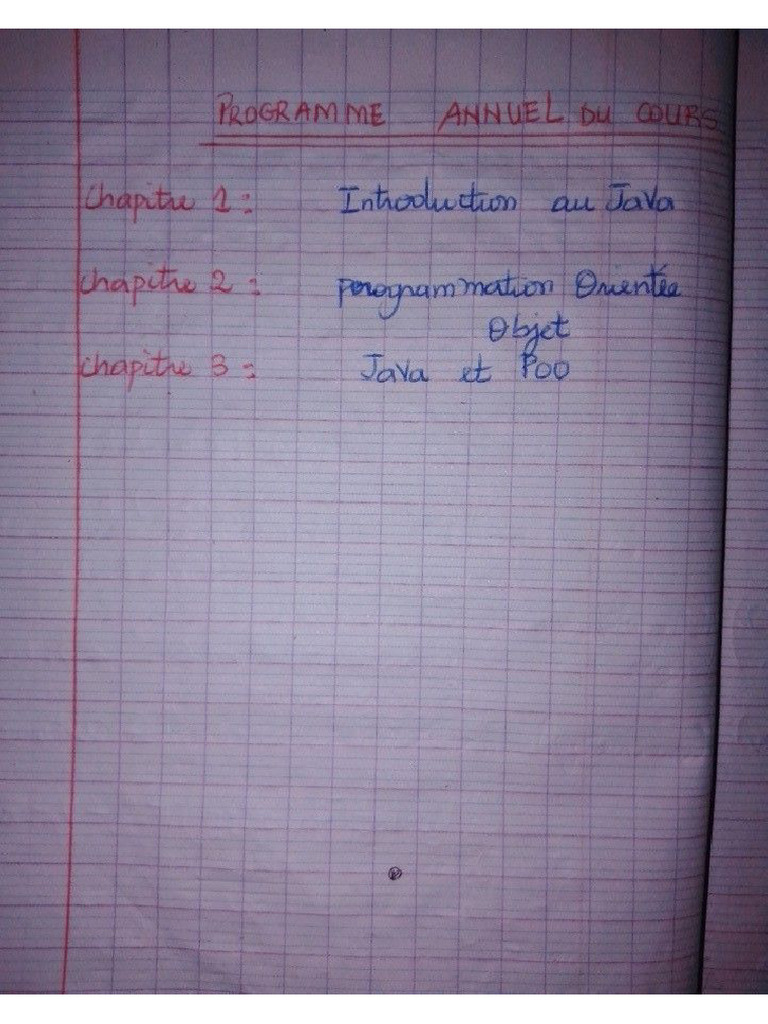 PROGRAMME ANNUEL DU COURS
Chapitre 1 : Introduction au Java
Chapitre 2 : programmation Orientée
Objet
Chapitre 3 : Java et POO